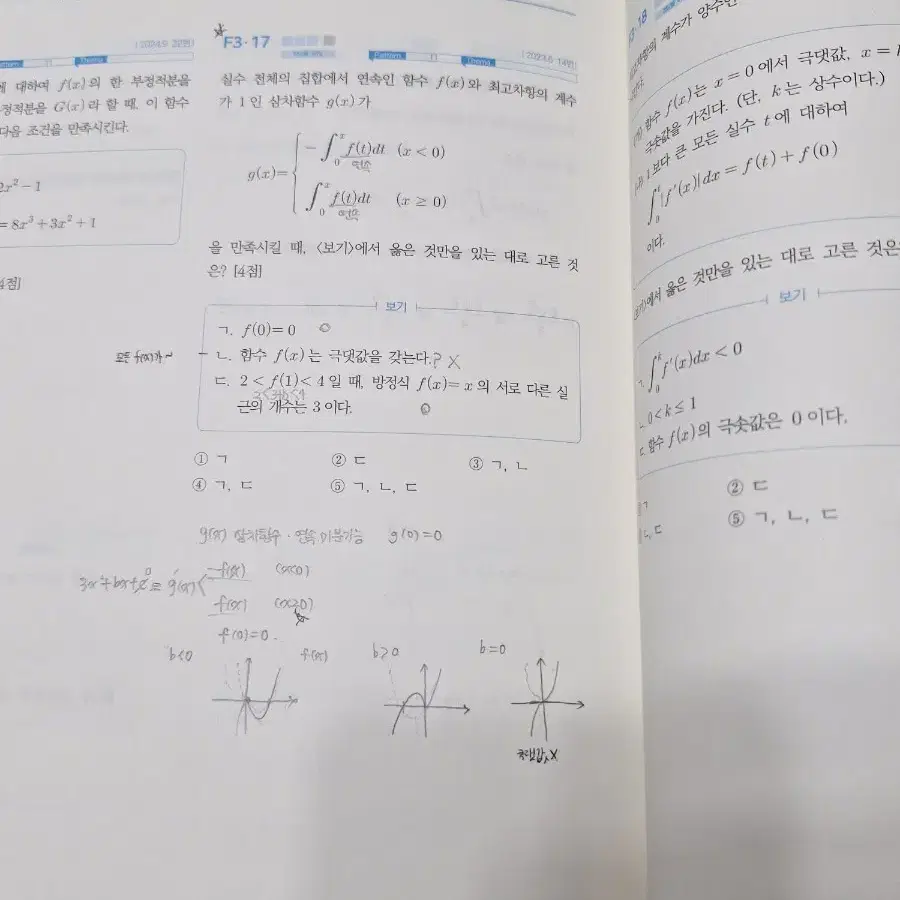 (2024.9 20번)
에 대하여 f(x)의 한 부정적분을
부정적분을 G(x)라 할 때, 이 함수
다음 조건을 만족시킨다.
2x²-1
=8x³+3x²+1
4점]
F3·17
(2023.6 14번)
Pattern
11
Thema
실수 전체의 집합에서 연속인 함수 f(x)와 최고차항의 계수
가 1인 삼차함수 g(x)가
g(x)={ -∫₀ˣ f(t)dt (x<0)
연속
∫₀ˣ f(t)dt (x≥0)
연속
을 만족시킬 때, <보기>에서 옳은 것만을 있는 대로 고른 것
은? [4점]
보기
ㄱ. f(0)=0 ○
모든 f(x)가 ~
ㄴ. 함수 f(x)는 극댓값을 갖는다.? X
ㄷ. 2<f(1)<4일 때, 방정식 f(x)=x의 서로 다른 실
근의 개수는 3이다. ○
2<3+b<4
① ㄱ ② ㄷ ③ ㄱ, ㄴ
④ ㄱ, ㄷ ⑤ ㄱ, ㄴ, ㄷ
g(x) 삼차함수 · 연속 미분가능 g'(0)=0
3x²+bx+c = g'(x) -f(x) (x<0)
0
f(x) (x≥0)
f(0)=0.
b<0 f(x) b>0 b=0
극댓값 X
3·18
최고차항의 계수가 양수인
(가) 함수 f(x)는 x=0에서 극댓값, x=k
극솟값을 가진다. (단, k는 상수이다.)
(나) 1보다 큰 모든 실수 t에 대하여
∫₀ᵗ|f'(x)|dx=f(t)+f(0)
이다.
<보기>에서 옳은 것만을 있는 대로 고른 것은
보기
ㄱ. ∫₀ᵏ f'(x)dx<0
ㄴ. 0<k≤1
ㄷ. 함수 f(x)의 극솟값은 0이다.
ㄱ ② ㄷ
ㄴ, ㄷ ⑤ ㄱ, ㄴ, ㄷ